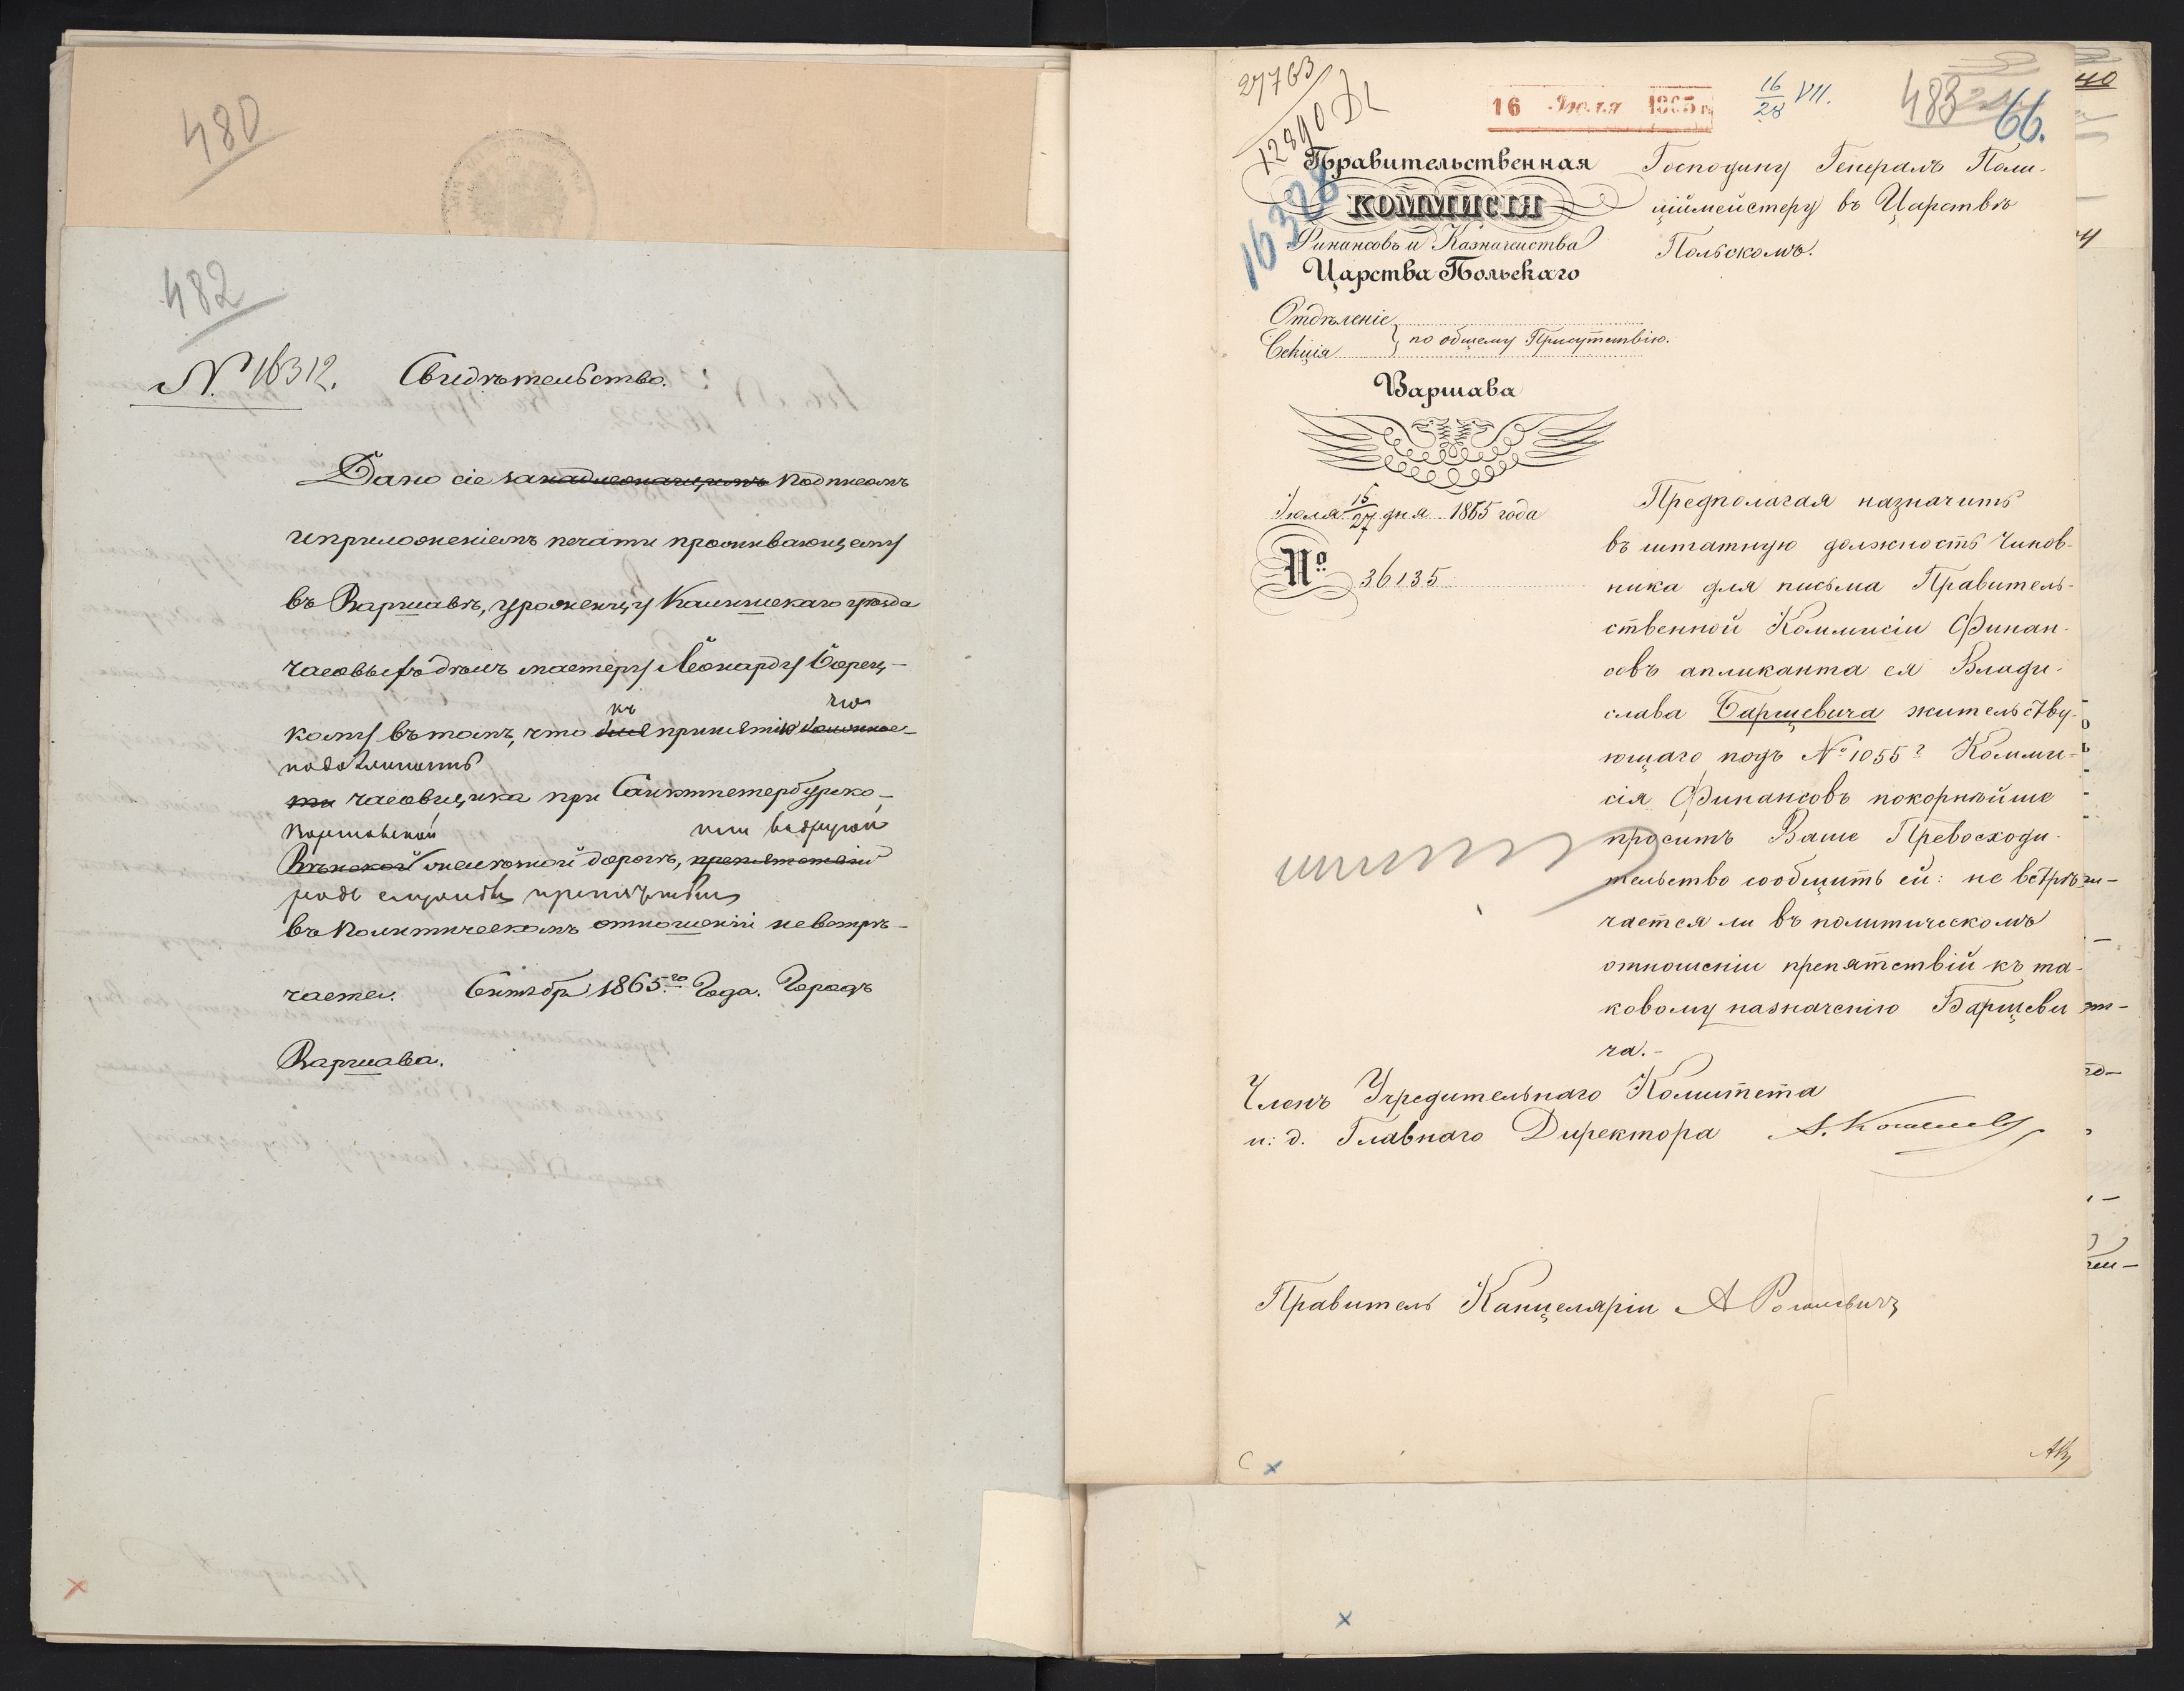 480
482
N. 16312. Свидѣтельство.
Дано сіе за надлежащимъ подписомъ
и приложеніемъ печати проживающему
въ Варшавѣ, уроженцу Калишскаго уѣзда
часовыхъ дѣлъ мастеру Леонарду Борец-
къ
кому въ томъ, что для принятію
часовщика при Санктпетербурско-
Варшавской или въ другой
Вѣнской желѣзной дорогѣ, препятствій
родѣ службы препятствія
въ политическомъ отношеніи не встрѣ-
чается. Сентябр 1865.го Года. Городъ
Варшава.
27763
12890
16 Июля 1865 г.
16/28 VII.
483
66.
16328
Правительственная
КОММИСІЯ
Финансовъ и Казначейства
Царства Польскаго
Отдѣленіе
Секція } по общему Присутствію.
Варшава
Іюля 15/27 дня 1865 года
№ 36135
Господину Генералъ Поли-
ціймейстеру въ Царствѣ
Польскомъ.
Предполагая назначить
въ штатную должность Чинов-
ника для письма Правитель-
ственной Коммисіи Финан-
совъ апликанта ея Влади-
слава Барщевича жительству-
ющаго подъ № 1055 Комми-
сія Финансовъ покорнѣйше
проситъ Ваше Превосходи-
тельство сообщить ей: не встрѣ-
чается ли въ политическомъ
отношеніи препятствій къ та-
ковому назначенію Барщеви
ча.-
Членъ Учредительнаго Комитета
и: д. Главнаго Директора А. Кошелевъ
Правитель Канцеляріи А